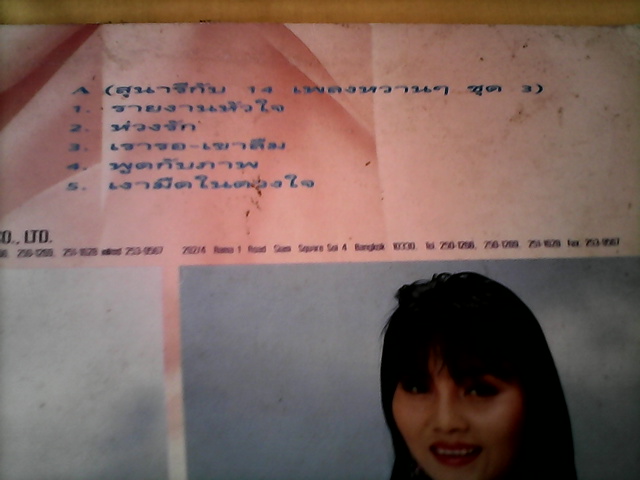 A (สุนารีกับ 14 เพลงหวานๆ ชุด 3)
1. รายงานหัวใจ
2. ห่วงรัก
3. เรารอ-เขาลืม
4. พูดกับภาพ
5. เงามืดในดวงใจ
CO., LTD.
250-1209, 251-1628 แฟกซ์ 253-9567 282/4 Rama 1 Road Siam Square Soi 4 Bangkok 10330. Tel. 250-1206, 250-1209, 251-1628 Fax. 253-9567